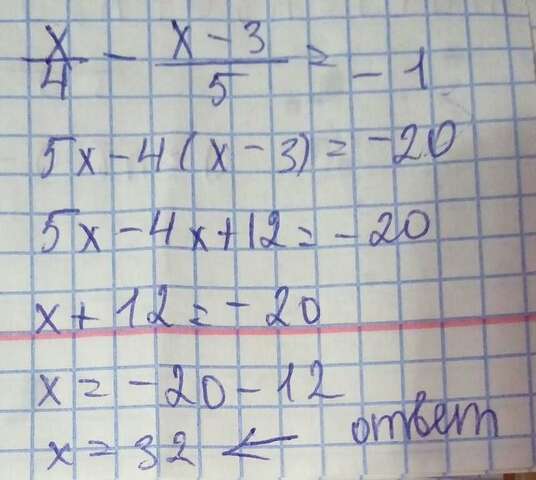 x/4 - x-3/5 = -1
5x-4(x-3)=-20
5x-4x+12=-20
x+12=-20
x=-20-12
x=32 ← ответ